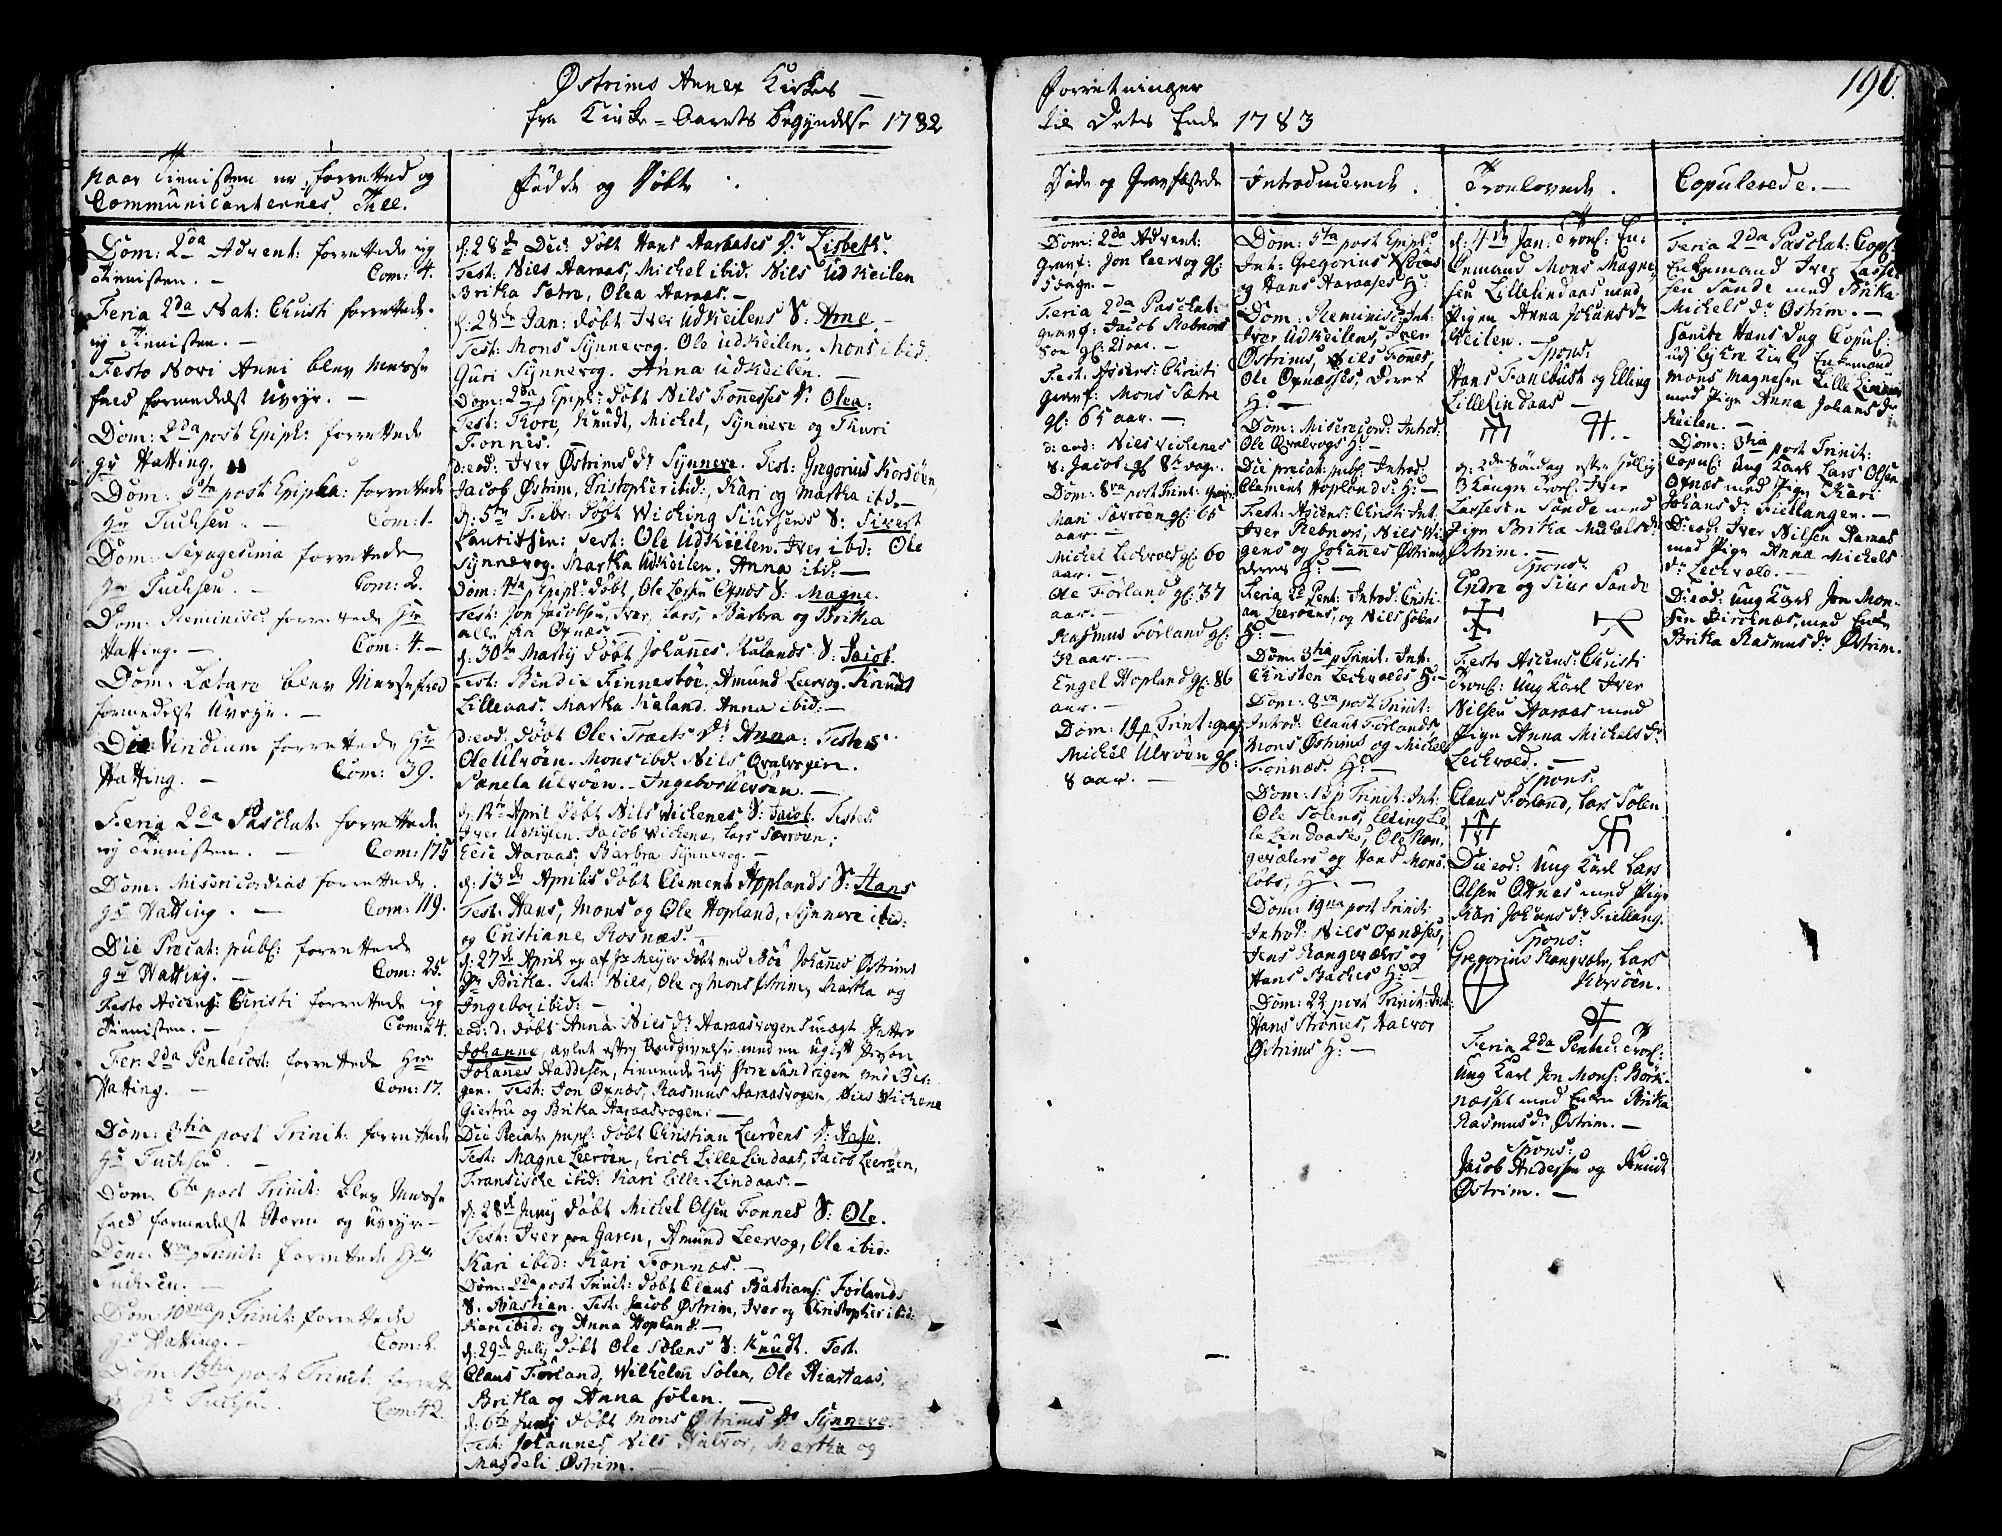 Østrims Annex Kirkes
fra Kirke-Aarets begyndelse 1782
Forretninger
til Dets Ende 1783
190.
naar Tienisten er forretted og
Communicanternes Tall.
Dom: 2da Advent: forrettede ieg
Tienisten. — Com: 4.
Feria 2da Nat: Christi forrettede
ieg Tienisten. —
Festo Novi Anni blev Messe
fald formedelst Uveyr. —
Dom: 2da post Epiph: forrettede
Hr Hatting.
Dom: 5ta post Epipha: forrettede
Hr Tuchsen. — Com: 1.
Dom: Sexagesima forrettede
Hr Tuchsen. — Com: 2.
Dom: Reminisc: forrettede Hr
Hatting. — Com: 4. —
Dom: Lætare blev Messefald
formedelst Uveyr. —
Die Viridium forrettede Hr
Hatting. — Com: 39.
Feria 2da Paschat: forrettede
ieg Tienisten. — Com: 175
Dom: Misericordias forrettede
Hr Hatting. — Com: 119.
Die Precat: publ: forrettede
Hr Hatting. — Com: 25.
Festo Ascens: Christi forrettede ieg
Tienisten. — Com: 24.
Fer: 2da Pentecost: forrettede Hr
Hatting. — Com: 17.
Dom: 3tia post Trinit: forrettede
Hr Tuchsen. —
Dom: 6ta post Trinit: blev Messe
fald formedelst Storm og Uveyr —
Dom: 8va p Trinit: forrettede Hr
Tuchsen. —
Dom: 10ma p Trinit: forrettede
Hr Hatting. — Com: 2.
Dom: 13tia post Trinit: forrettede
Hr Tuchsen. Com: 42.
Fødde og Døbte
d: 28de Dec: døbt Hans Aaraases Dr Lisbeth.
Test: Niels Aaraas, Michel ibid. Nils Udkeilen
Britha Sætre, Olea Aaraas. —
d: 28de Jan: døbt Iver Udkeilens S: Arne. —
Test: Mons Synnevog. Ole Udkeilen. Mons ibid.
Guri Synnevog. Anna Udkeilen. —
Dom: 2da p Epiph: døbt Nils Fonneses Dr Olea:
Test: Thore, Knudt, Michel, Synneve og Thuri
Fonnes.
d: eod: Iver Østrims Dr Synneve. Test: Gregorius Korsøen,
Jacob Østrim, Cristopher ibid:, Kari og Martha ibid —
d: 5te Febr: døbt Wicking Siursens S: Sivert
Test: Ole Udkeilen. Iver ibid: Ole
Synnevog. Martha Udkeilen. Anna ibid: —
Dom: 4ta p Epiph: døbt, Ole Larsen Oxnes S: Magne.
Test: Jon Jacobsen, Iver, Lars, Barbra og Britha
alle fra Oxnæs. —
d: 30te Martij døbt Johannes Kulands S: Jacob.
Test: Bendix Finnesbøe. Amund Leervog. Knudt
Lilleaas. Martha Kuland. Anna ibid: —
d: eod: døbt Ole Traets Dr Anna: Testes
Ole Ulvøen. Mons ibid. Nils Qvalvogen.
Pernela Ulvøen. — Ingebor Ulvøen. —
d: 12te April døbt Nils Wickenes S: Jacob. Testes
Iver Udkeilen. Jacob Wickene, Lars Særvøen,
Elie Aaraas, Barbra Synnevog. —
d: 13de Aprilis døbt Clement Hoplands S: Hans
Test: Hans, Mons og Ole Hopland, Synneve ibid:
og Cristiane Rosnæs. —
d: 27de April er af Hr Meyer døbt ved Bøe Johannes Østrims
Dr Britha. Test: Nils, Ole og Mons Østrim, Martha og
Ingebor ibid: —
eod: d: døbt Anna Nils Dr Aaraasvogen uægte Datter
Johanne, avlet efter Udgivelse med en ugift Person
Johannes Haddesen, tienende udj store Sandvigen ved Ber-
gen. Test: Jon Oxnæs, Rasmus Aaraasvogen, Nils Wickene
Giertru og Britha Aaraasvogen: —
Die Precat: publ: døbt Christian Leerøens S: Hase.
Test: Magne Leerøen, Erich Lille Lindaas, Jacob Leerøen,
Fransische ibid: Kari Lille-Lindaas. —
d: 28de Junij døbt Michel Olsen Fonnes S: Ole.
Test: Iver paa Garen, Amund Leervog, Ole ibid:
Kari ibid: Kari Fonnæs. —
Dom: 2da post Trinit: døbt Claus Bastians: Førlands
S: Bastian. Test: Jacob Østrim, Iver og Christopher ibid:
Kari ibid: og Anna Hopland. —
d: 29de Julij døbt Ole Sølens S: Knudt. Test.
Claus Førland, Wilhelm Solen, Ole Kiartaas,
Britha og Anna Sølen. —
d: 6te Junij døbt Mons Østrims Dr Synneve.
Test: Johannes, Nils Halvor, Martha og
Magdeli Østrim. —
Døde og Gravfæstede
Dom: 2da Advent:
Gravf: Jon Leervog gl:
5 dage. —
Feria 2da Paschat:
gravf: Jacob Rebnors
Søn gl: 21 aar. —
Fest: Ascens: Christi
Gravf: Mons Sætre
gl: 65 aar. —
d: eod: Nils Wickenes
S: Jacob gl 8te dage.
Dom: 8va post Trinit: grav
Mari Særvøen gl: 65
aar. —
Michel Leckvold gl: 60
aar. —
Ole Førland gl: 37
aar. —
Rasmus Førland gl:
32 aar. —
Engel Hopland gl: 86
aar. —
Dom: 19 p Trint: grav
Michel Ulvøen gl:
8 aar. —
Introducerede.
Dom: 5ta post Epiph:
Int: Gregorius
og Hans Aaraases H: —
Dom: Reminisc: Int:
Iver Udkeilens, Iver
Østrims, Nils Fonnes,
Ole Oxnæsses, deres
H: —
Dom: Misericord: Introd:
Ole Qvalvogs H: —
Die precat: publ: Introd:
Clement Hoplands H: —
Fest: Ascens: Christi Int:
Iver Rebnors, Nils Wi-
gens og Johannes Østrims
deres H: —
Feria 2 Pent: Introd: Cristi-
an Leerøens, og Nils Sølens
H: —
Dom: 3tia p Trinit: Int:
Christen Leckvolds H: —
Dom: 8va post Trinit:
Introd: Claus Førlands,
Mons Østrims og Michel
Fonnæs. H: —
Dom: 13 p Trinit: Int:
Ole Solens, Elling Lil-
le Lindaases, Ole Ran-
gevælers og Hans Mons-
løbs, H: —
Dom: 19na post Trinit:
Introd: Nils Oxnæses,
Jens Rangevælers og
Hans Backes H: —
Dom: 22 post Trinit: Int:
Hans Strømes, Halvor
Østrims H: —
Trolovede.
d: 4de Jan: Trol: En-
kemand Mons Magne-
sen Lillelindaas med
Pigen Anna Johans Dr
Keilen. —
Spons:
Hans Fanebust og Elling
Lille Lindaas —
d: 2de Søndag efter Hellig
3 Konger Trol: Iver
Lassesen Sande med
Pige Britha Michels Dr
Østrim. —
Spons:
Endre og Siur Sande
Festo Ascens: Christi
Trol: Ung Karl Iver
Nilsen Aaraas med
Pige Anna Michels Dr
Leckvold. —
Spons:
Claus Førland, Lars Solen.
Die eod: Ung Karl Lars
Olsen Oxnes med Pige
Kari Johans Dr Fiellang.
Spons:
Gregorius Rangevæler, Lars
Korsøen.
Feria 2da Pentec: Trol:
Ung Karl Jon Mons: Børk-
næsset med Enke Britha
Rasmus Dr Østrim. —
Spons:
Jacob Andersen og Knudt
Østrim. —
Copulerede. —
Feria 2da Paschat: Copl:
Enkemand Iver Lasse-
sen Sande med Britha
Michels Dr Østrim. —
Samme Hans Dag Copul:
udj Lyche Kirke Enkemand
Mons Magnesen Lille Lindaas
med Pige Anna Johans Dr
Keilen. —
Dom: 3tia post Trinit:
Copul: Ung Karl Lars Olsen
Oxnæs med Pige Kari
Johans Dr Fiellanger. —
Die od: Iver Nilsen Aaraas
med Pige Anna Michels
Dr Leckvold. —
Die od: Ung Karl Jon Mon-
sen Birchnæs, med Enke
Britha Rasmus Dr Østrim.